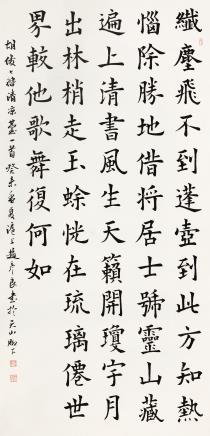 纖塵飛不到蓬壺到此方知熱
惱除勝地借將居士號靈山藏
遍上清書風生天籟開瓊宇月
出林梢走玉蜍恍在琉璃僊世
界較他歌舞復何如
清涼臺一首癸未書於天山腳下